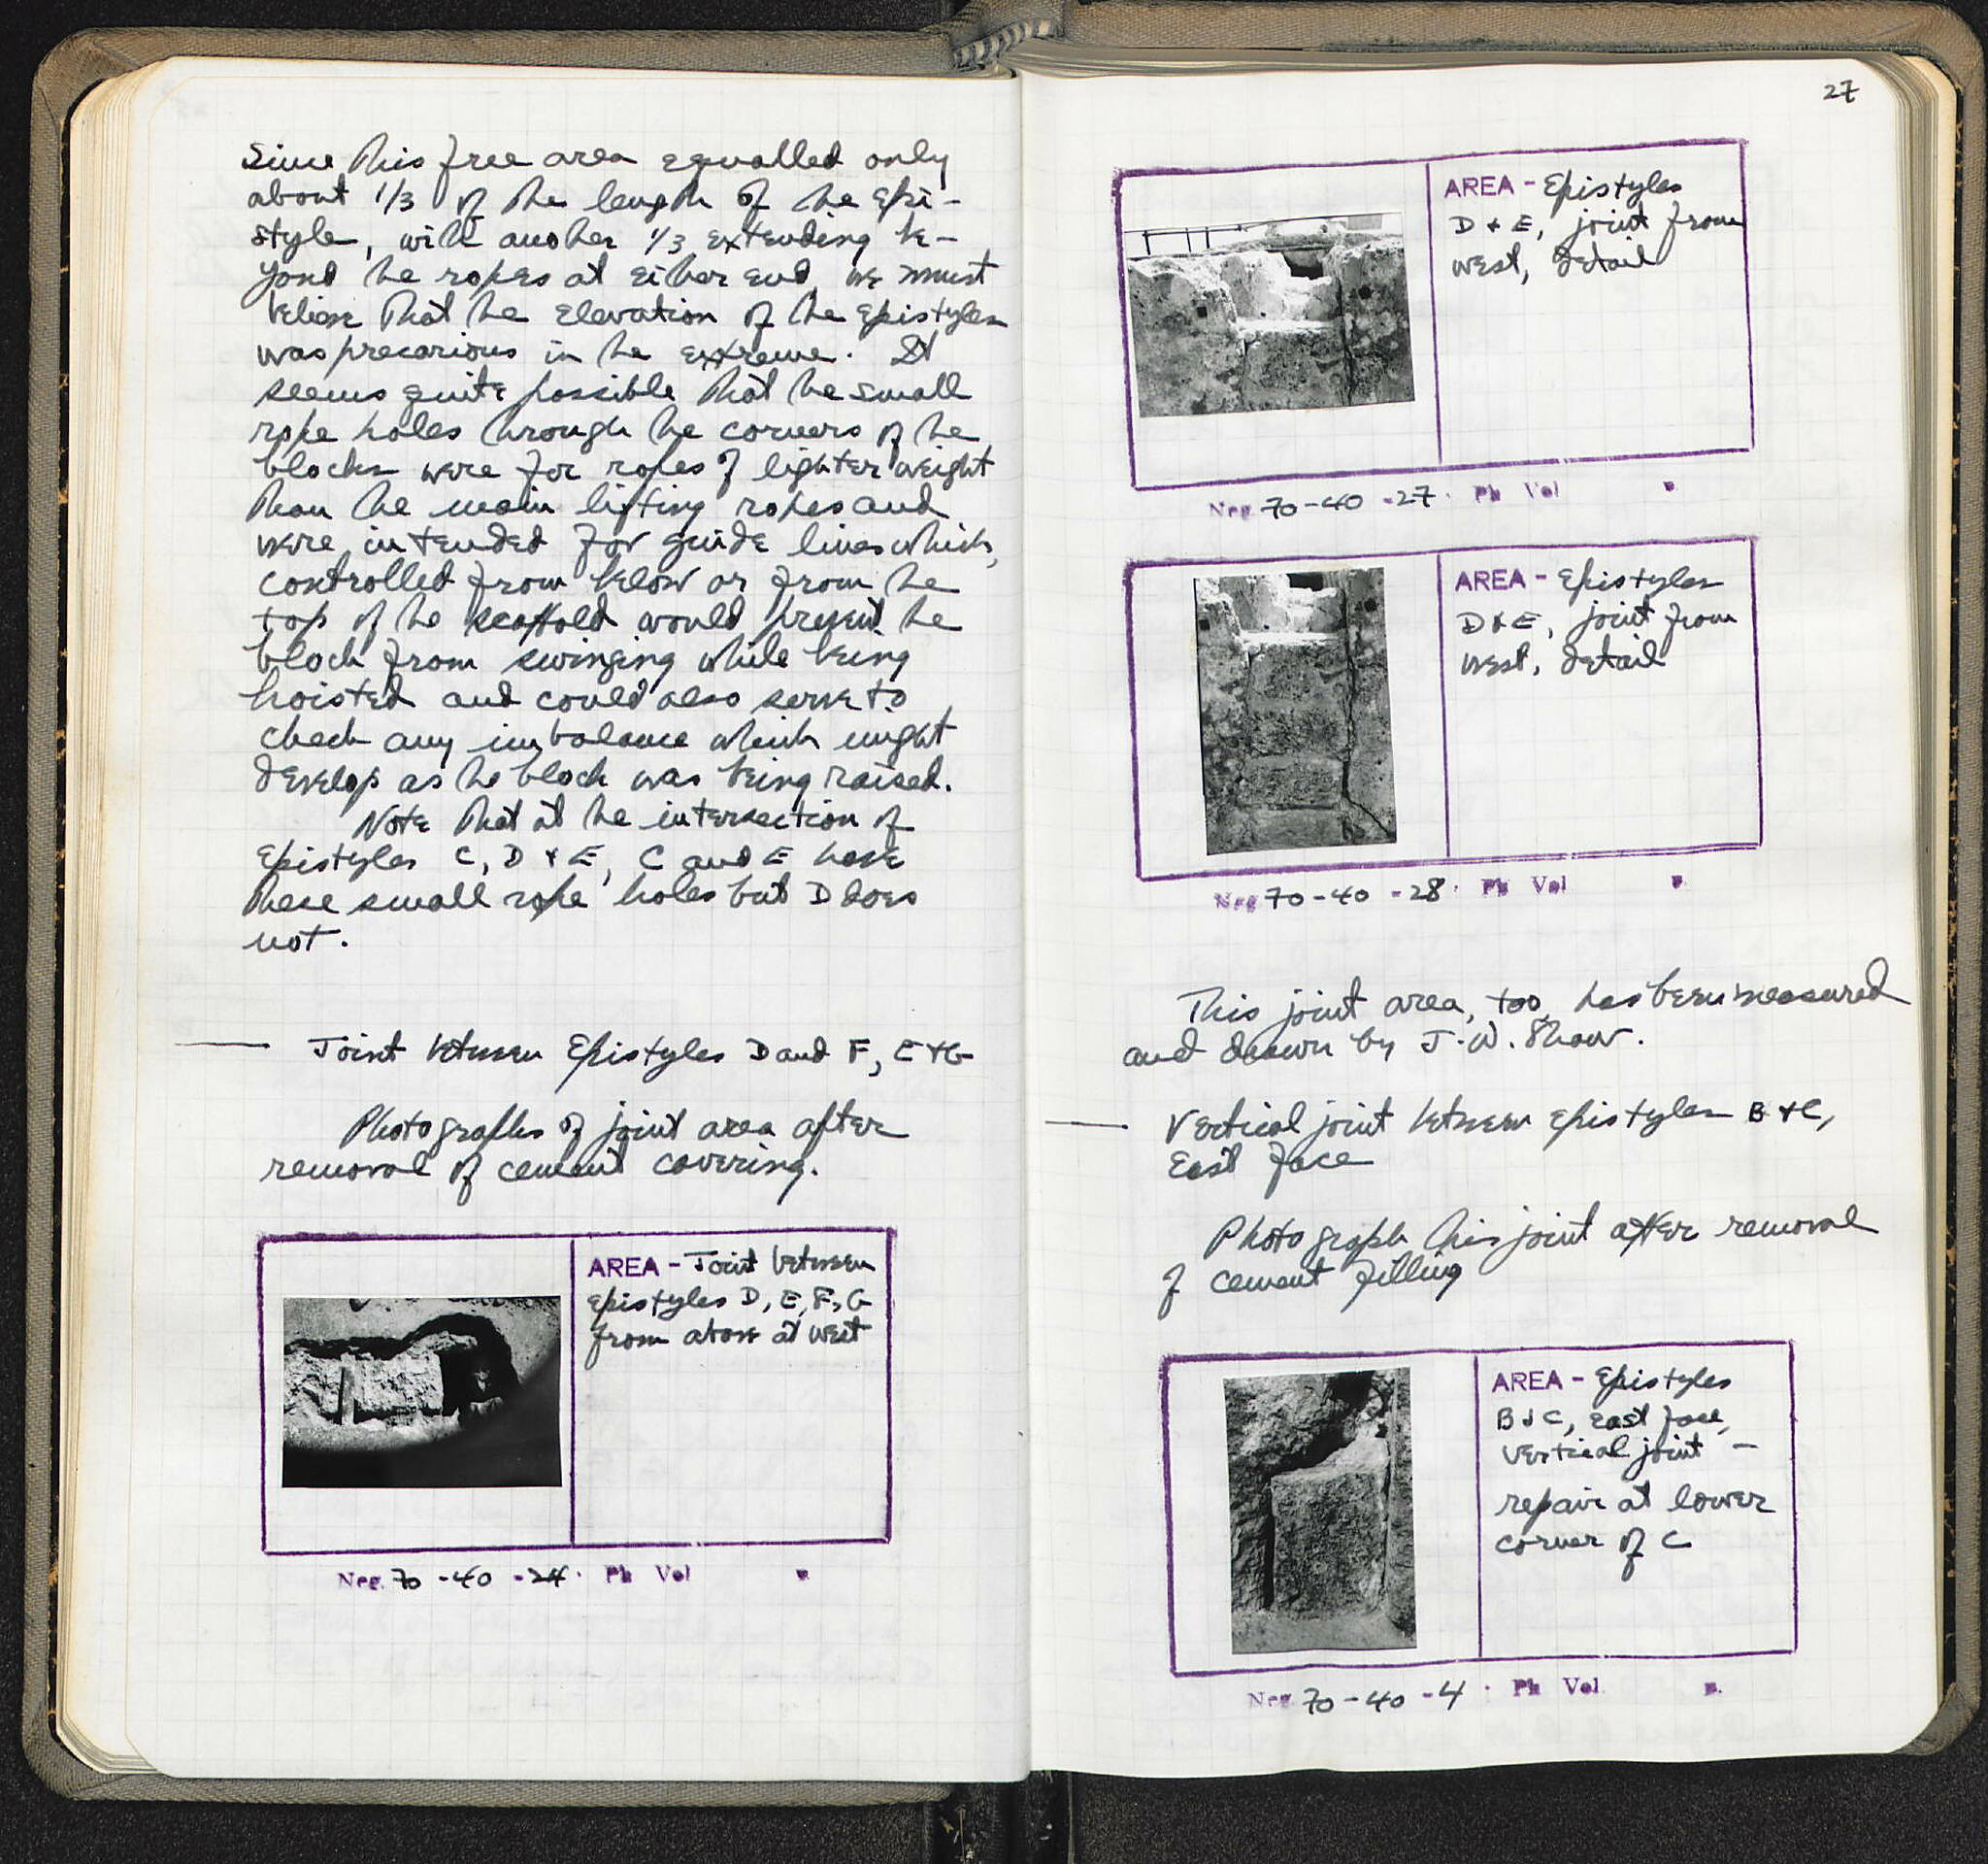 Since this free area equalled only
about 1/3 of the length of the epi-
style, with another 1/3 extending be-
yond the ropes at either end, we must
believe that the elevation of the epistyles
was precarious in the extreme. It
seems quite possible that the small
rope holes through the corners of the
blocks were for ropes of lighter weight
than the main lifting ropes and
were intended for guide lines which,
controlled from below or from the
top of the scaffold would prevent the
block from swinging while being
hoisted and could also serve to
check any imbalance which might
develop as the block was being raised.
Note that at the intersection of
Epistyles C, D + E, C and E have
these small rope holes but D does
not.
Joint between Epistyles D and F, E + G
Photographs of joint area after
removal of cement covering.
AREA - Joint between
epistyles D, E, F, G
from above at west
Neg. 70-40-24. Ph Vol p.
27
AREA - Epistyles
D + E, joint from
west, detail
Neg 70-40-27. Ph Vol p.
AREA - Epistyles
D + E, joint from
west, detail
Neg 70-40-28. Ph Vol p.
This joint area, too, has been measured
and drawn by J. W. Shaw.
Vertical joint between epistyles B + C,
East face
Photograph this joint after removal
of cement filling
AREA - Epistyles
B + C, east face,
vertical joint -
repair at lower
corner of C
Neg. 70-40-4. Ph Vol p.